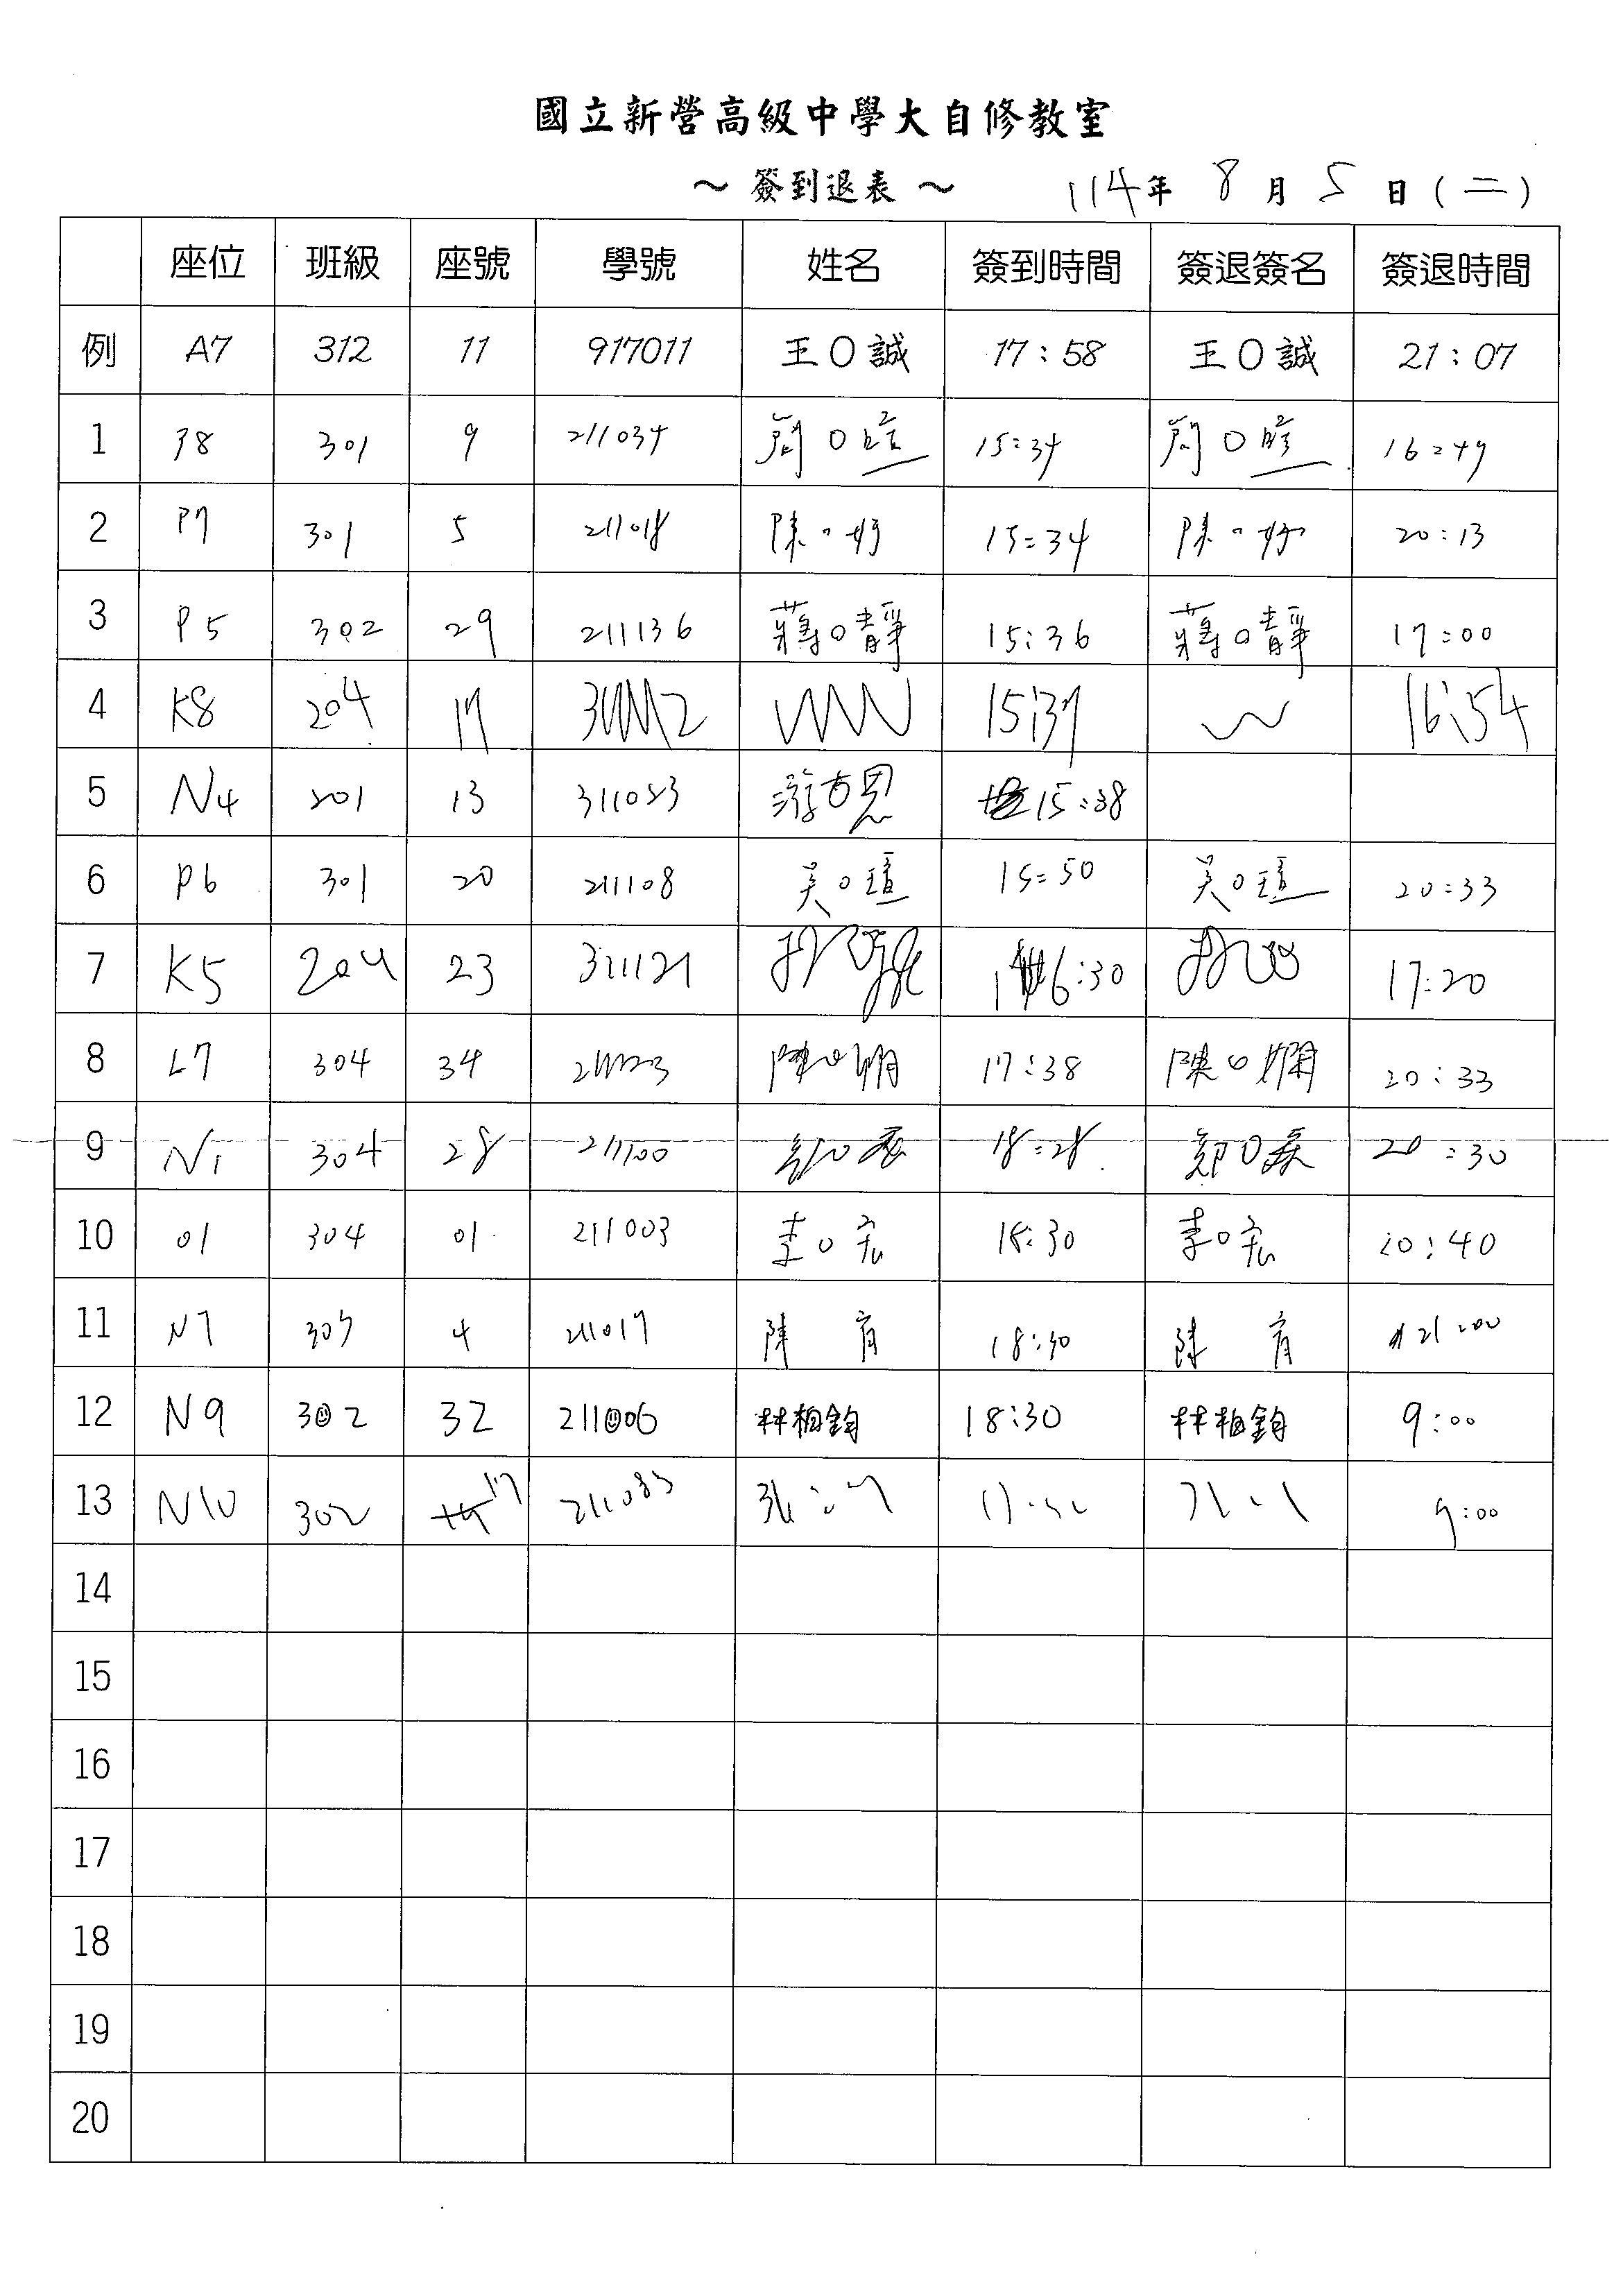 國立新營高級中學大自修教室
～ 簽到退表 ～ 114年 8月 5日(二)
座位 班級 座號 學號 姓名 簽到時間 簽退簽名 簽退時間
例 A7 312 11 917011 王O誠 17:58 王O誠 21:07
1 301 9 211034 簡O 15:34 簡O 16:49
2 P7 301 5 211018 陳 15:34 陳 20:13
3 P5 302 29 211136 蔣O靜 15:36 蔣O靜 17:00
4 K8 204 17 15:37 16:54
5 N4 201 13 311053 15:38
6 P6 301 20 211108 吳O瑄 15:50 吳O瑄 20:33
7 K5 204 23 6:30 17:20
8 L7 304 34 陳O 17:38 陳O嫻 20:33
9 N1 304 28 211100 18:28 鄭O 20:30
10 01 304 01 211003 李O宏 18:30 李O宏 20:40
11 N7 4 211017 陳 育 18:30 陳 育 21:00
12 N9 302 32 211006 林柏鈞 18:30 林柏鈞 9:00
13 N10 302 17 211083 9:00
14
15
16
17
18
19
20